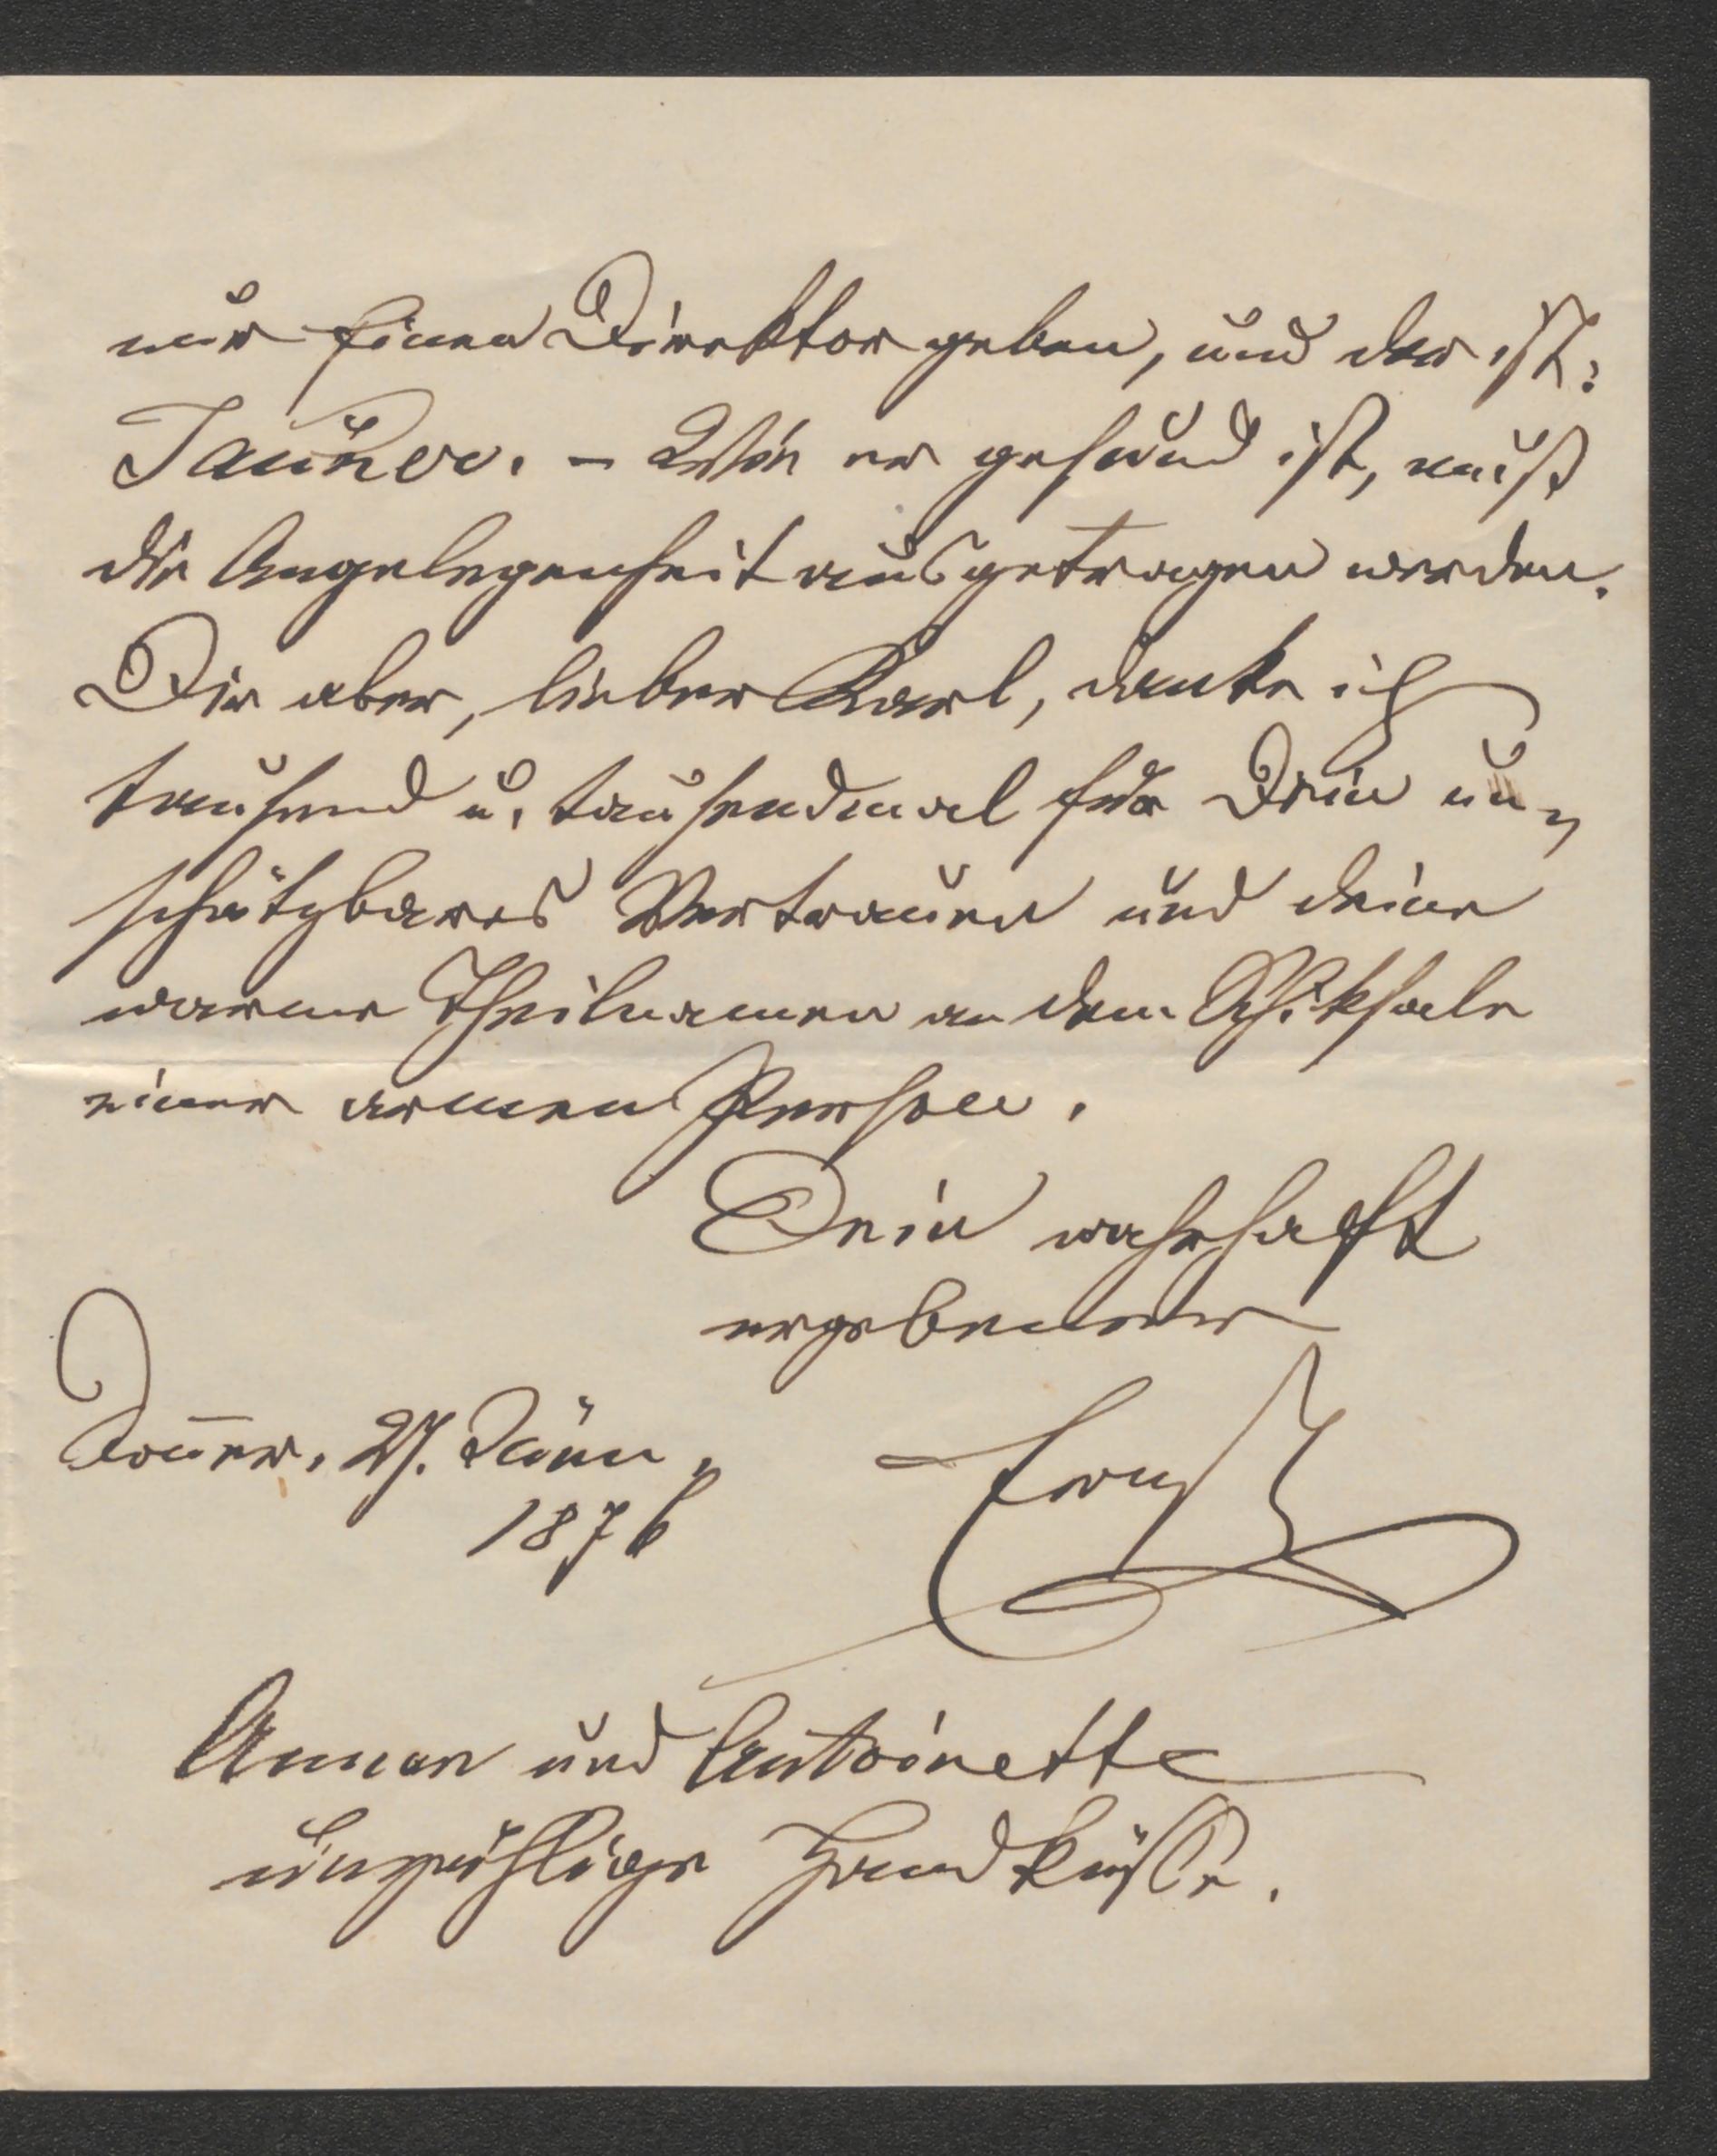 nur Einen Direktor geben, und der ist:
Jauner. – Wie er gesund ist, muß
die Angelegenheit ausgetragen werden.
Dir aber, lieber Karl, danke ich
tausend u. tausendmal für Dein un-
schätzbares Vertrauen und deine
warme Theilnamen an dem Schiksale
einer armen Person.
Dein wahrhaft
ergebener
27. Jänn.
1876
Ernst
Annen und Antoinette
unzählige Handküsse.